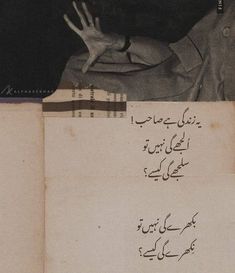 یہ زندگی ہے صاحب!
اُلجھے گی نہیں تو
سلجھے گی کیسے؟
بکھرے گی نہیں تو
نکھرے گی کیسے؟